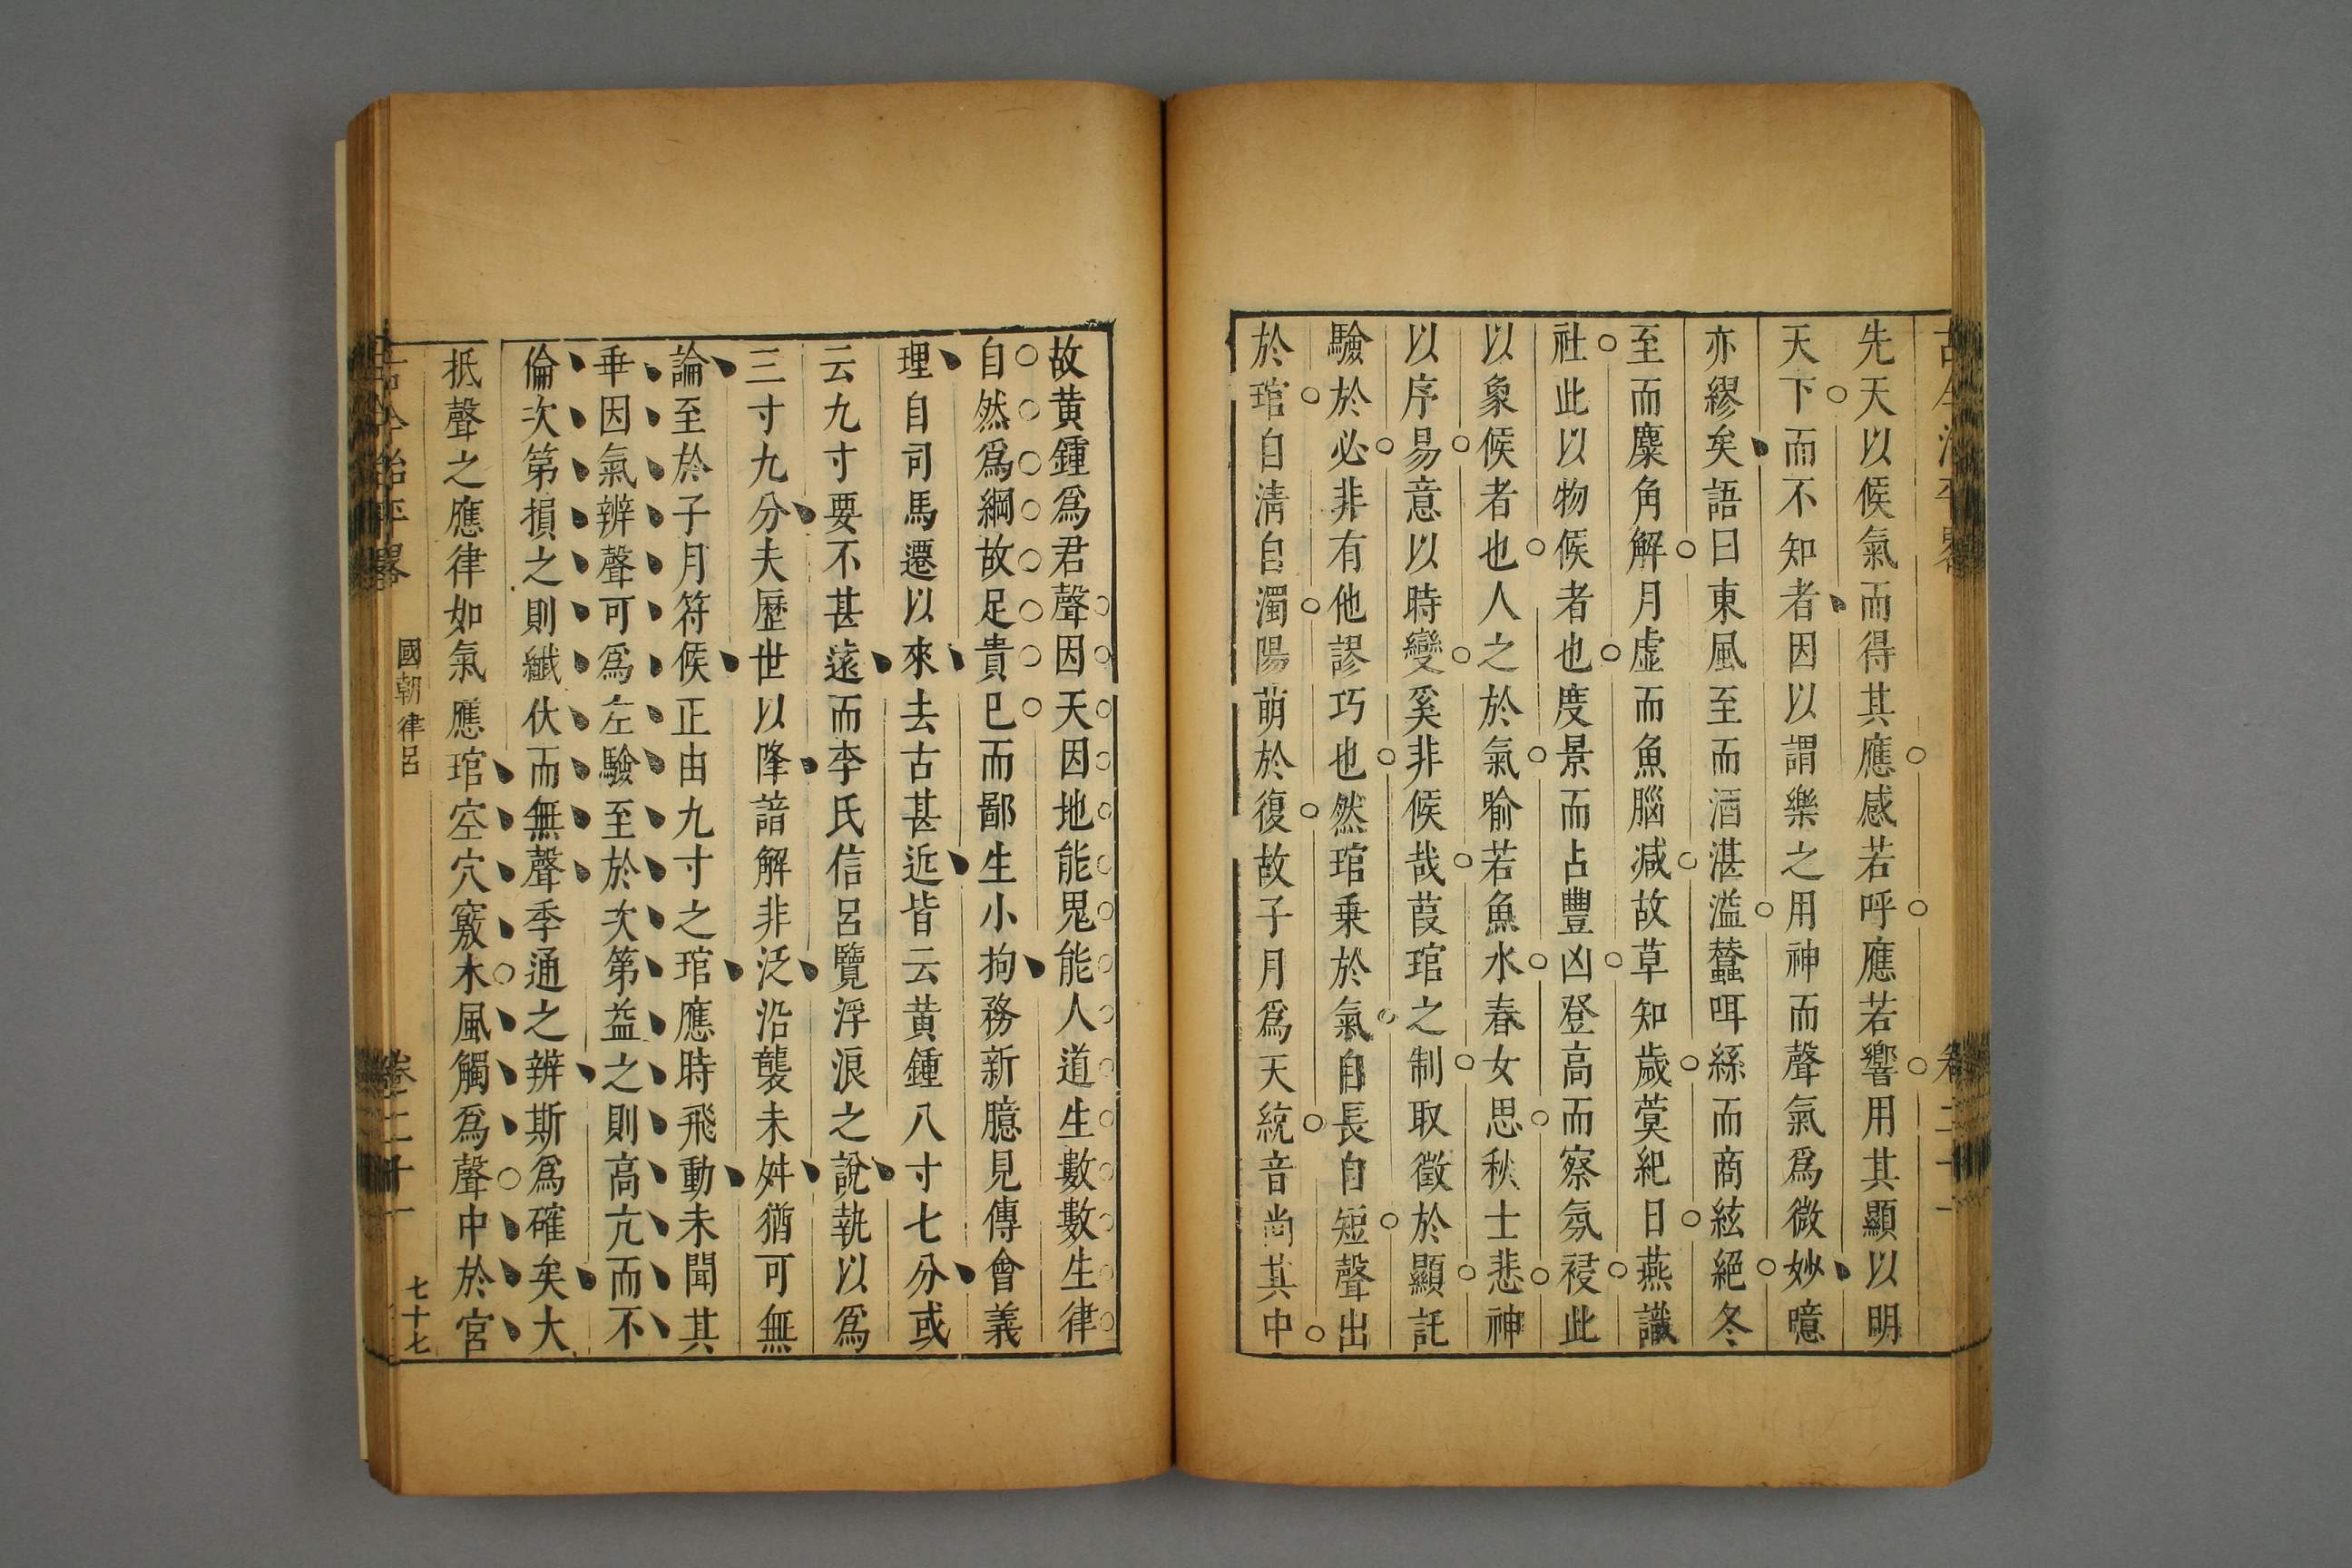 先天以候氣而得其應感若呼應若響用其顯以明
天下而不知者因以謂樂之用神而聲氣爲微妙噫
亦繆矣語曰東風至而酒湛溢蠶咡絲而商絃絕冬
至而麋角解月虛而魚腦减故草知歲蓂紀日燕識
社此以物候者也度景而占豐凶登高而察氛祲此
以象候者也人之於氣喻若魚水春女思秋士悲神
以序易意以時變奚非候哉葭琯之制取徵於顯託
驗於必非有他謬巧也然琯乗於氣自長自短聲出
於琯自清自濁陽萌於復故子月爲天統音尚其中
故黄鍾爲君聲因天因地能鬼能人道生數數生律
自然爲綱故足貴已而鄙生小拘務新臆見傳會義
理自司馬遷以來去古甚近皆云黄鍾八寸七分或
云九寸要不甚遠而李氏信呂覽浮浪之說執以爲
三寸九分夫歷世以降諳解非泛沿襲未舛猶可無
論至於子月符候正由九寸之琯應時飛動未聞其
垂因氣辨聲可爲左驗至於次第益之則高亢而不
倫次第損之則纖伏而無聲季通之辨斯爲確矣大
抵聲之應律如氣應琯空穴竅木風觸爲聲中於宮
古今治平畧
國朝律呂
卷二十一
七十七